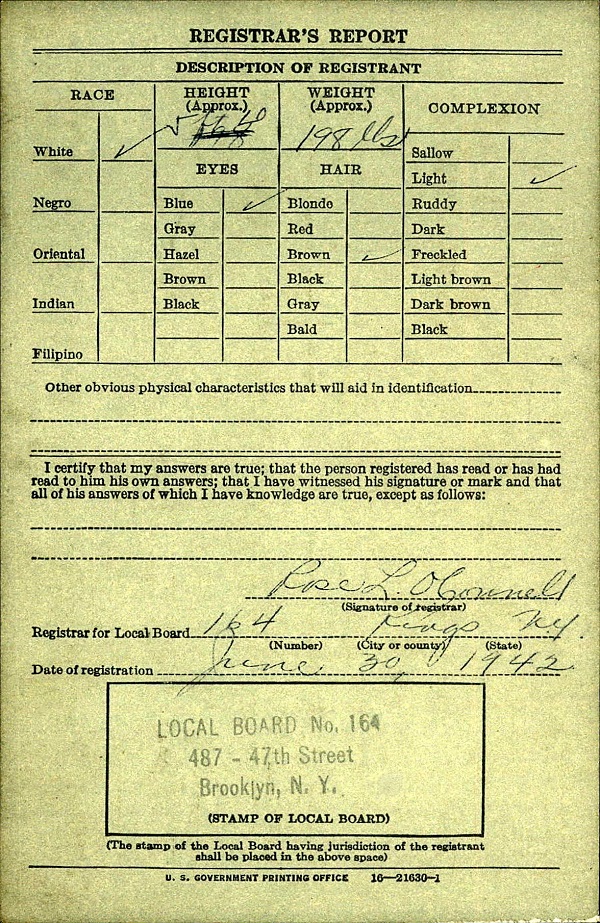 REGISTRAR'S REPORT
DESCRIPTION OF REGISTRANT
RACE
HEIGHT (Approx.)
WEIGHT (Approx.)
COMPLEXION
198 lbs
White ✓
Negro
Oriental
Indian
Filipino
EYES
Blue ✓
Gray
Hazel
Brown
Black
HAIR
Blonde
Red
Brown ✓
Black
Gray
Bald
Sallow
Light ✓
Ruddy
Dark
Freckled
Light brown
Dark brown
Black
Other obvious physical characteristics that will aid in identification
I certify that my answers are true; that the person registered has read or has had
read to him his own answers; that I have witnessed his signature or mark and that
all of his answers of which I have knowledge are true, except as follows:
Rose L. O'Connell
(Signature of registrar)
Registrar for Local Board 164 Kings N.Y.
(Number) (City or county) (State)
Date of registration June 30, 1942
LOCAL BOARD No. 164
487 - 47th Street
Brooklyn, N. Y.
(STAMP OF LOCAL BOARD)
(The stamp of the Local Board having jurisdiction of the registrant
shall be placed in the above space)
U. S. GOVERNMENT PRINTING OFFICE 16—21630-1